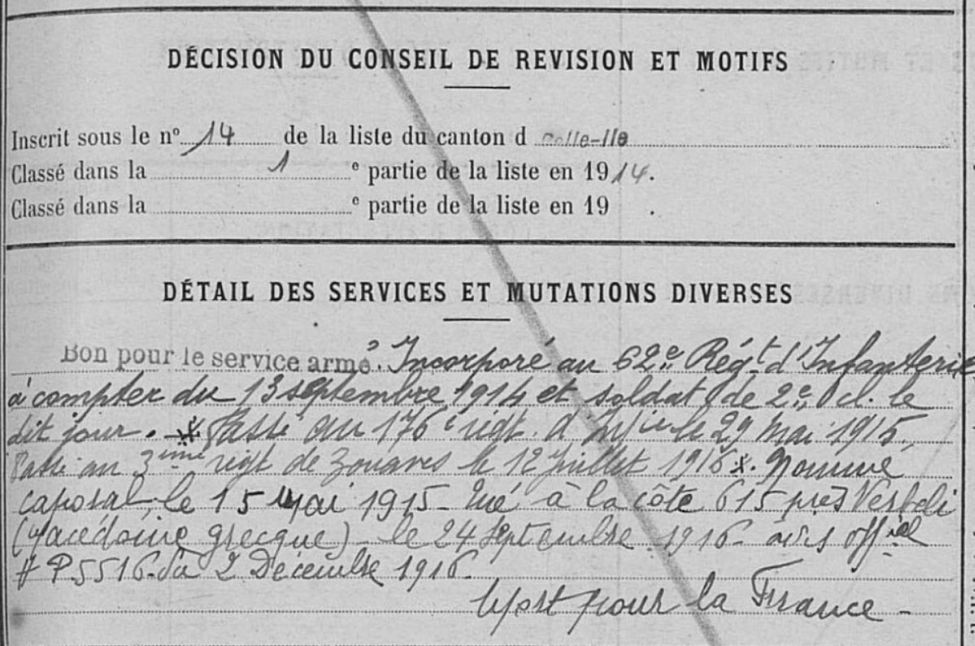 DÉCISION DU CONSEIL DE REVISION ET MOTIFS
Inscrit sous le nº 14 de la liste du canton d Belle-Ile
Classé dans la 1 e partie de la liste en 1914.
Classé dans la e partie de la liste en 19 .
DÉTAIL DES SERVICES ET MUTATIONS DIVERSES
Bon pour le service armé. Incorporé au 62e Régt d'Infanterie
à compter du 13 septembre 1914 et soldat de 2e cl. le
dit jour. Passé au 176e régt d'Infie le 29 mai 1915.
Passé au 3ème régt de zouaves le 12 juillet 1916 x. Nommé
caporal le 15 mai 1915 - tué à la côte 615 près
(Macédoine grecque) - le 24 septembre 1916 - avis offiel
# P5516 du 2 Décembre 1916.
Mort pour la France -